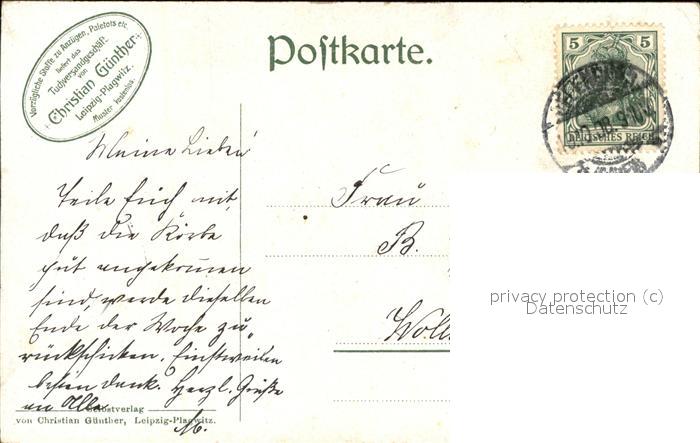 Vorzügliche Stoffe zu Anzügen, Paletots etc.
liefert das
Tuchversandgeschäft
von
Christian Günther
Leipzig-Plagwitz.
Muster kostenlos.
Postkarte.
5 5
DEUTSCHES REICH
Meine Lieben!
Teile Euch mit,
daß die Körbe
gut angekommen
sind, werde dieselben
Ende der Woche zu-
rückschicken. Einstweilen
besten Dank. Herzl. Grüße
an Alle
M.
Frau
B.
Woll
privacy protection (c)
Datenschutz
Selbstverlag
von Christian Günther, Leipzig-Plagwitz.